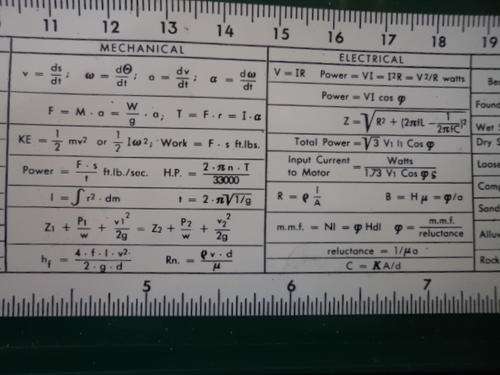 11 12 13 14 15 16 17 18 19
MECHANICAL
v = ds/dt; ω = dΘ/dt; a = dv/dt; α = dω/dt
F = M · a = W/g · a; T = F · r = I · α
KE = 1/2 mv² or 1/2 Iω²; Work = F · s ft.lbs.
Power = F · s/t ft.lb./sec. H.P. = 2 · π n · T/33000
I = ∫ r² · dm t = 2 · π √1/g
Z₁ + P₁/w + v1²/2g = Z₂ + P₂/w + v₂²/2g
hf = 4 · f · l · v²/2 · g · d Rn. = ρ v · d/μ
ELECTRICAL
V = IR Power = VI = I²R = V²/R watts
Power = VI cos φ
Z = √R² + (2πfL - 1/2πfC)²
Total Power = √3 V₁ I₁ Cos φ
Input Current to Motor = Watts/1.73 V₁ Cos φ ξ
R = ρ l/A B = H μ = φ/a
m.m.f. = NI = φ Hdl φ = m.m.f./reluctance
reluctance = 1/μa
C = KA/d
Found
Wet S
Dry S
Loose
Comp
Sand
Alluv
Rock
5 6 7